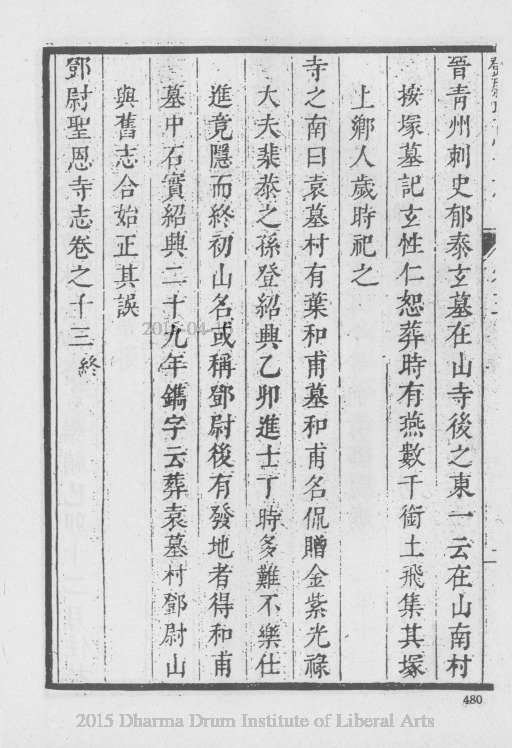 晉青州刺史郁泰玄墓在山寺後之東一云在山南村
按塚墓記玄性仁恕葬時有燕數千銜土飛集其塚
上鄉人歲時祀之
寺之南曰袁墓村有葉和甫墓和甫名侃贈金紫光祿
大夫棐恭之孫登紹興乙卯進士丁時多難不樂仕
進竟隱而終初山名或稱鄧尉後有發地者得和甫
墓中石實紹興二十九年鐫字云葬袁墓村鄧尉山
與舊志合始正其誤
鄧尉聖恩寺志卷之十三 終
480
2015 Dharma Drum Institute of Liberal Arts